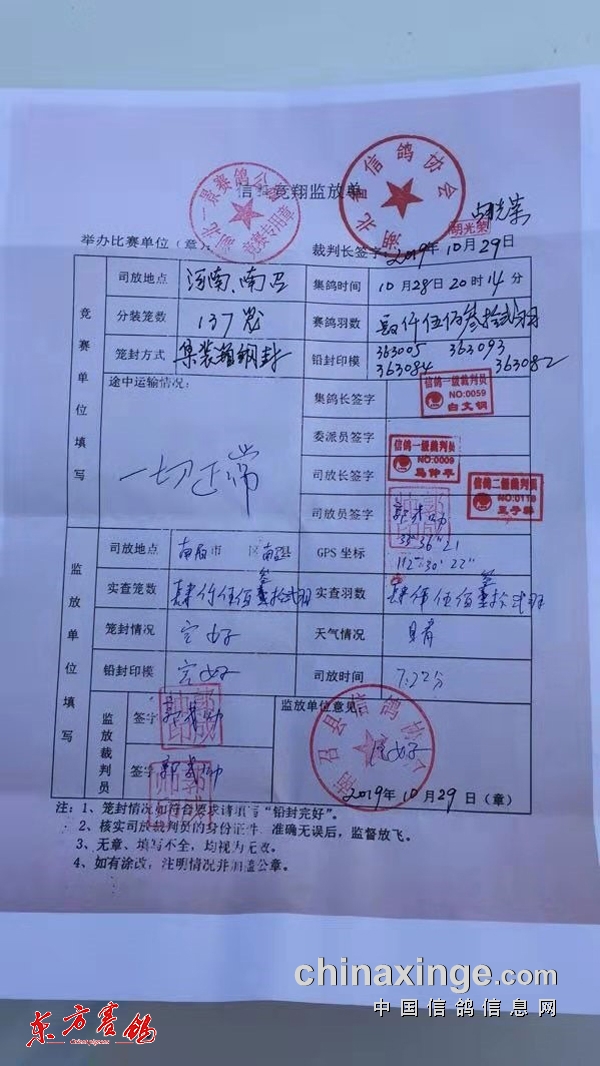 信鸽竞翔监放单
湖北省信鸽协会
湖北一景赛鸽公
竞赛专用章
胡光荣
举办比赛单位（章）:
裁判长签字:
胡光荣
2019年10月29日
竞赛单位填写
司放地点 河南、南召
集鸽时间 10月28日20时14分
分装笼数 137笼
赛鸽羽数 肆仟伍佰叁拾贰羽
笼封方式 集装箱钢封
铅封印模 363005 363093
363084 363082
途中运输情况:
一切正常
集鸽长签字
信鸽一级裁判员
NO:0059
白文钢
委派员签字
信鸽一级裁判员
NO:0006
司放长签字
信鸽二级裁判员
NO:0116
司放员签字
监放单位填写
司放地点 市 区 南召县
GPS坐标 33°36"21
112°30'22"
实查笼数 肆仟伍佰叁拾贰羽
实查羽数 肆仟伍佰叁拾贰羽
笼封情况 完好
天气情况 晴
铅封印模 完好
司放时间 7:22分
监放裁判员
签字
签字
监放单位意见
南召县信鸽协会
完好
2019年10月29日（章）
注：1、笼封情况如符合要求请填写“铅封完好”。
2、核实司放裁判员的身份证件，准确无误后，监督放飞。
3、无章、填写不全，均视为无效。
4、如有涂改，注明情况并加盖公章。
chinaxinge.com
中国信鸽信息网
东方赛鸽